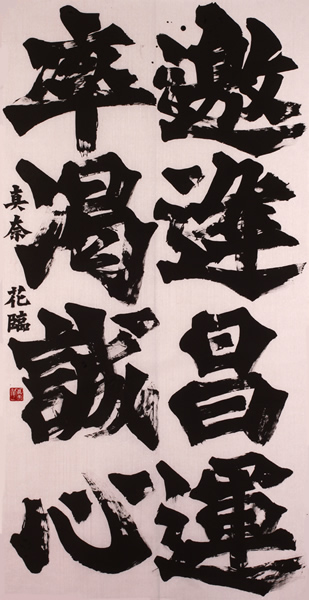 邀逢昌運
率渇誠心
真奈花臨